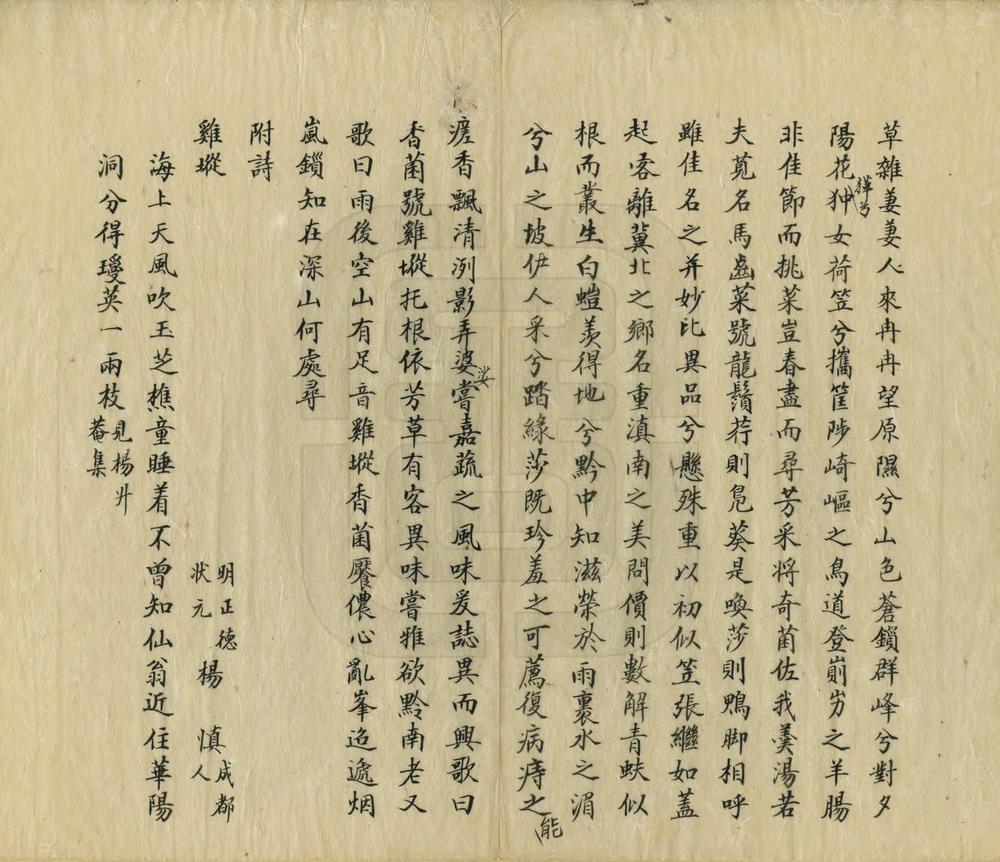 草雜萋萋人來冉冉望原隰兮山色蒼鎖群峰兮對夕
陽花狎女荷笠兮攜筐陟崎嶇之鳥道登崱屴之羊腸
繹兮
非佳節而挑菜豈春盡而尋芳采將奇菌佐我羹湯若
夫莧名馬齒菜號龍鬚荇則鳧葵是喚莎則鴨脚相呼
雖佳名之并妙比異品兮懸殊重以初似笠張繼如蓋
起客離冀北之鄉名重滇南之美問價則數解青蚨似
根而叢生白螘羨得地兮黔中知滋榮於雨裏水之湄
兮山之坡伊人采兮踏綠莎既珍羞之可薦復病痔之
能
瘥香飄清洌影弄婆嘗嘉蔬之風味爰誌異而興歌曰
娑
香菌號雞㙡托根依芳草有客異味嘗雅欲黔南老又
歌曰雨後空山有足音雞㙡香菌饜儂心亂峯迢遞烟
嵐鎖知在深山何處尋
附詩
雞㙡
明正德
狀元
楊慎
成都
人
海上天風吹玉芝樵童睡着不曾知仙翁近住華陽
洞分得璦英一兩枝
見楊升
菴集